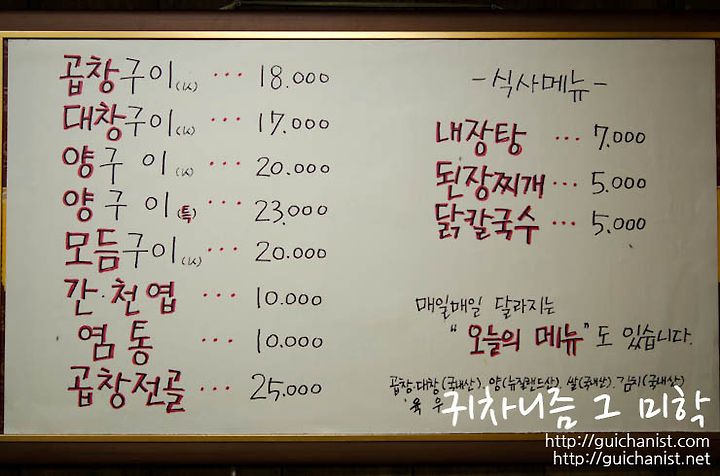 곱창구이(1人) ··· 18.000
대창구이(1人) ··· 17.000
양구이(1人) ··· 20.000
양구이(특) ··· 23.000
모듬구이(1人) ··· 20.000
간·천엽 ··· 10.000
염통 ··· 10.000
곱창전골 ··· 25.000
-식사메뉴-
내장탕 ··· 7.000
된장찌개 ··· 5.000
닭칼국수 ··· 5.000
매일매일 달라지는
"오늘의 메뉴"도 있습니다.
곱창.대창(국내산), 양(뉴질랜드산), 쌀(국내산), 김치(국내산)
육우
귀차니즘 그 미학
http://guichanist.com
http://guichanist.net